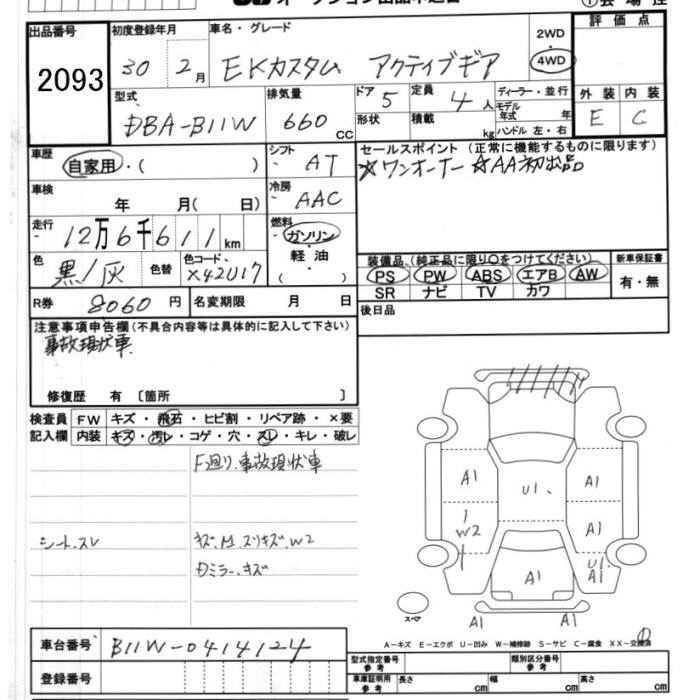 出品番号 初度登録年月 車名・グレード 2WD ・ 4WD 評価点
2093 30 2月 EKカスタム アクティブギア
型式 排気量 ドア 5 定員 4人 ディーラー・並行 外装 内装
DBA-B11W 660 CC 形状 積載 kg モデル年式 年 E C
ハンドル 左・右
車歴 自家用・( ) シフト AT セールスポイント (正常に機能するものに限ります)
☆ワンオーナー ☆AA初出品
車検 年 月( 日) 冷房 AAC
走行 12万6千611km 燃料 ガソリン・軽油・( )
色 黒/灰 色替 色コード X42U17
装備品 (純正品に限り○をつけてください) 新車保証書
PS PW ABS エアB AW 有・無
SR ナビ TV カワ
R券 8060円 名変期限 月 日 後日品
注意事項申告欄(不具合内容等は具体的に記入して下さい)
事故現状車
修復歴 有 〔箇所 〕
検査員 FW キズ・飛石・ヒビ割・リペア跡・×要
記入欄 内装 キズ・汚レ・コゲ・穴・スレ・キレ・破レ
F廻り、事故現状車
シート、スレ キズ、M、スリキズ、W2
Dミラー、キズ
A1 U1 A1
W2 A1
A1 U1 A1
スペア A1 A1
A-キズ E-エクボ U-凹み W-補修跡 S-サビ C-腐食 XX-交換済
車台番号 B11W-0414124
型式指定番号 参考 類別区分番号 参考
登録番号 車庫証明用 参考 長さ cm 幅 cm 高さ cm